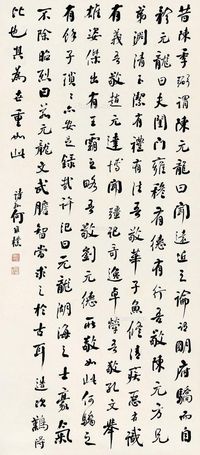 昔陳季弼謂陳元龍曰聞遠近之論謂明府驕而自
矜元龍曰夫閨門雍穆有德有行吾敬陳元方兄
弟淵清玉潔有禮有法吾敬華子魚脩清疾惡有識
有義吾敬趙元達博聞強記奇逸卓犖吾敬孔文舉
雄姿傑出有王霸之略吾敬劉元德所敬如此何驕之
有餘子瑣瑣亦安足錄哉許汜曰元龍湖海之士豪氣
不除昭烈曰若元龍文武膽智當求之於古耳造次難得
比也其為世重如此
詩孫何維樸